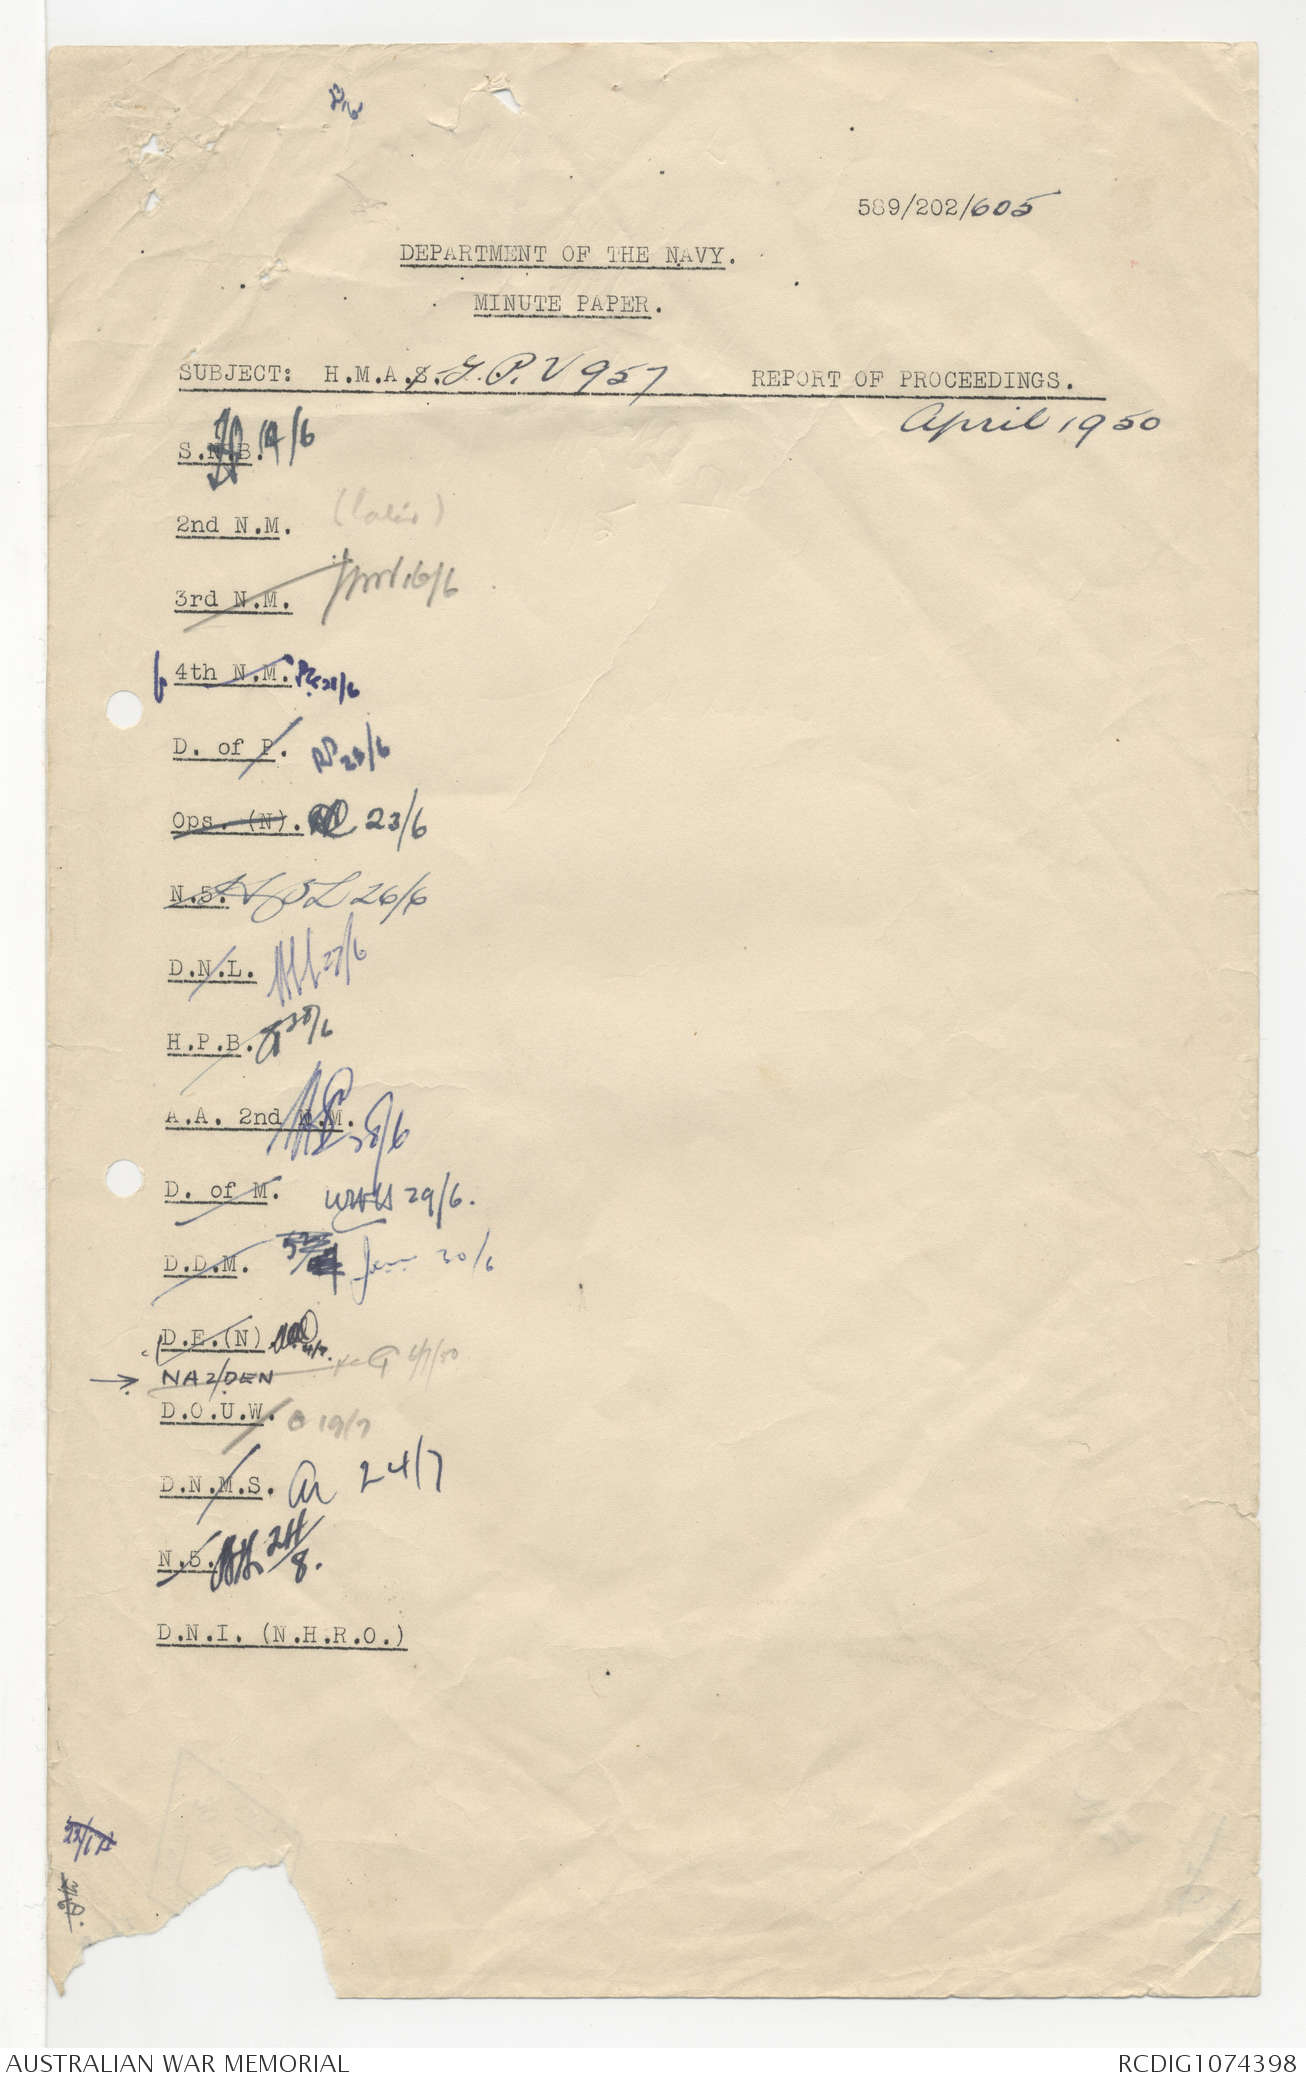 589/202/605
DEPARTMENT OF THE NAVY.
MINUTE PAPER.
SUBJECT: H.M.A.S. G.P.V 957 REPORT OF PROCEEDINGS.
April 1950
S.N.B. 14/6
2nd N.M. (later)
3rd N.M. 16/6
4th N.M. 21/6
D. of P. 23/6
Ops. (N). 23/6
N.5. 26/6
D.N.L. 27/6
H.P.B. 28/6
A.A. 2nd N.M. 28/6
D. of M. 29/6.
D.D.M. 30/6
D.E.(N)
→ NA2/DEN 6/7/50
D.O.U.W. 19/7
D.N.M.S. 24/7
N.5. 24/8.
D.N.I. (N.H.R.O.)
AUSTRALIAN WAR MEMORIAL RCDIG1074398